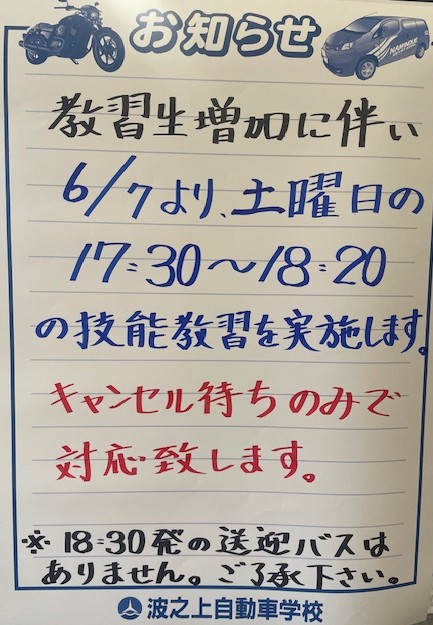 お知らせ
教習生増加に伴い
6/7より、土曜日の
17:30～18:20
の技能教習を実施します。
キャンセル待ちのみで
対応致します。
※18:30発の送迎バスは
ありません。ご了承下さい。
波之上自動車学校